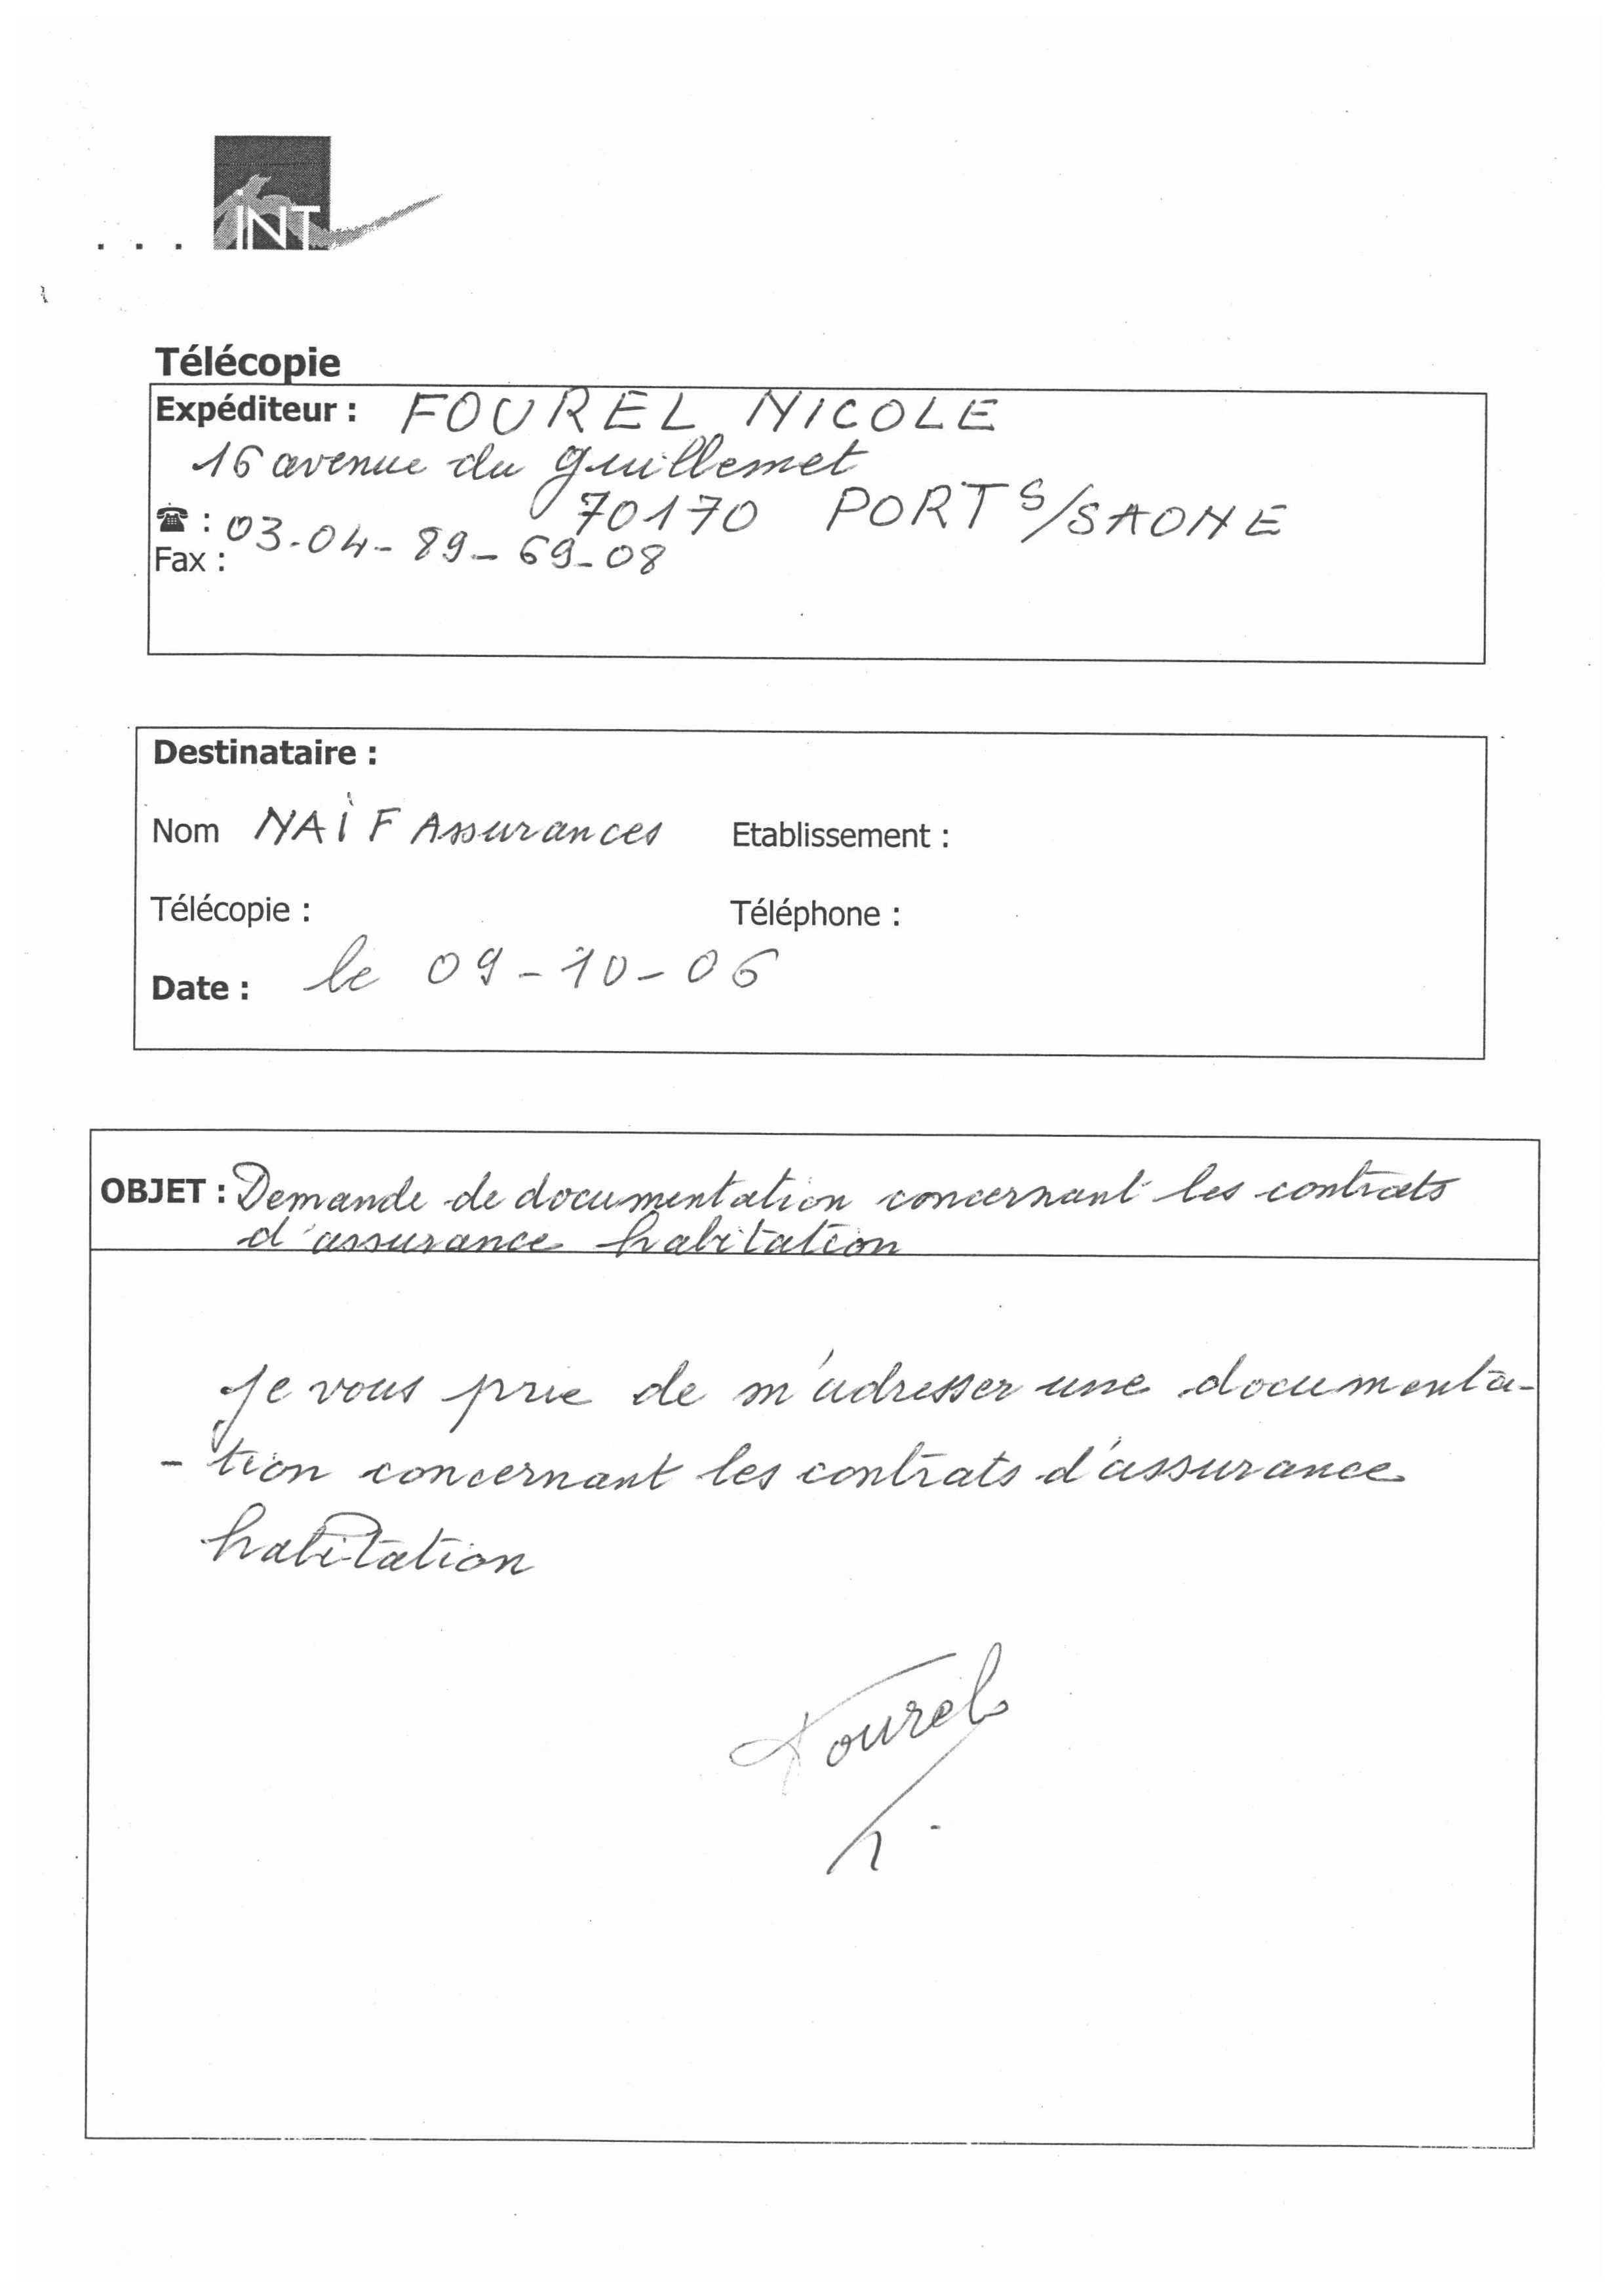 ... INT
Télécopie
Expéditeur : FOUREL NICOLE
16 avenue du guillemet
70170 PORT S/SAONE
☎ : 03-04-89-69-08
Fax :
Destinataire :
Nom NAÏF Assurances Etablissement :
Télécopie : Téléphone :
Date : le 09-10-06
OBJET : Demande de documentation concernant les contrats
d'assurance habitation
Je vous prie de m'adresser une documenta-
- tion concernant les contrats d'assurance
habitation
Fourel